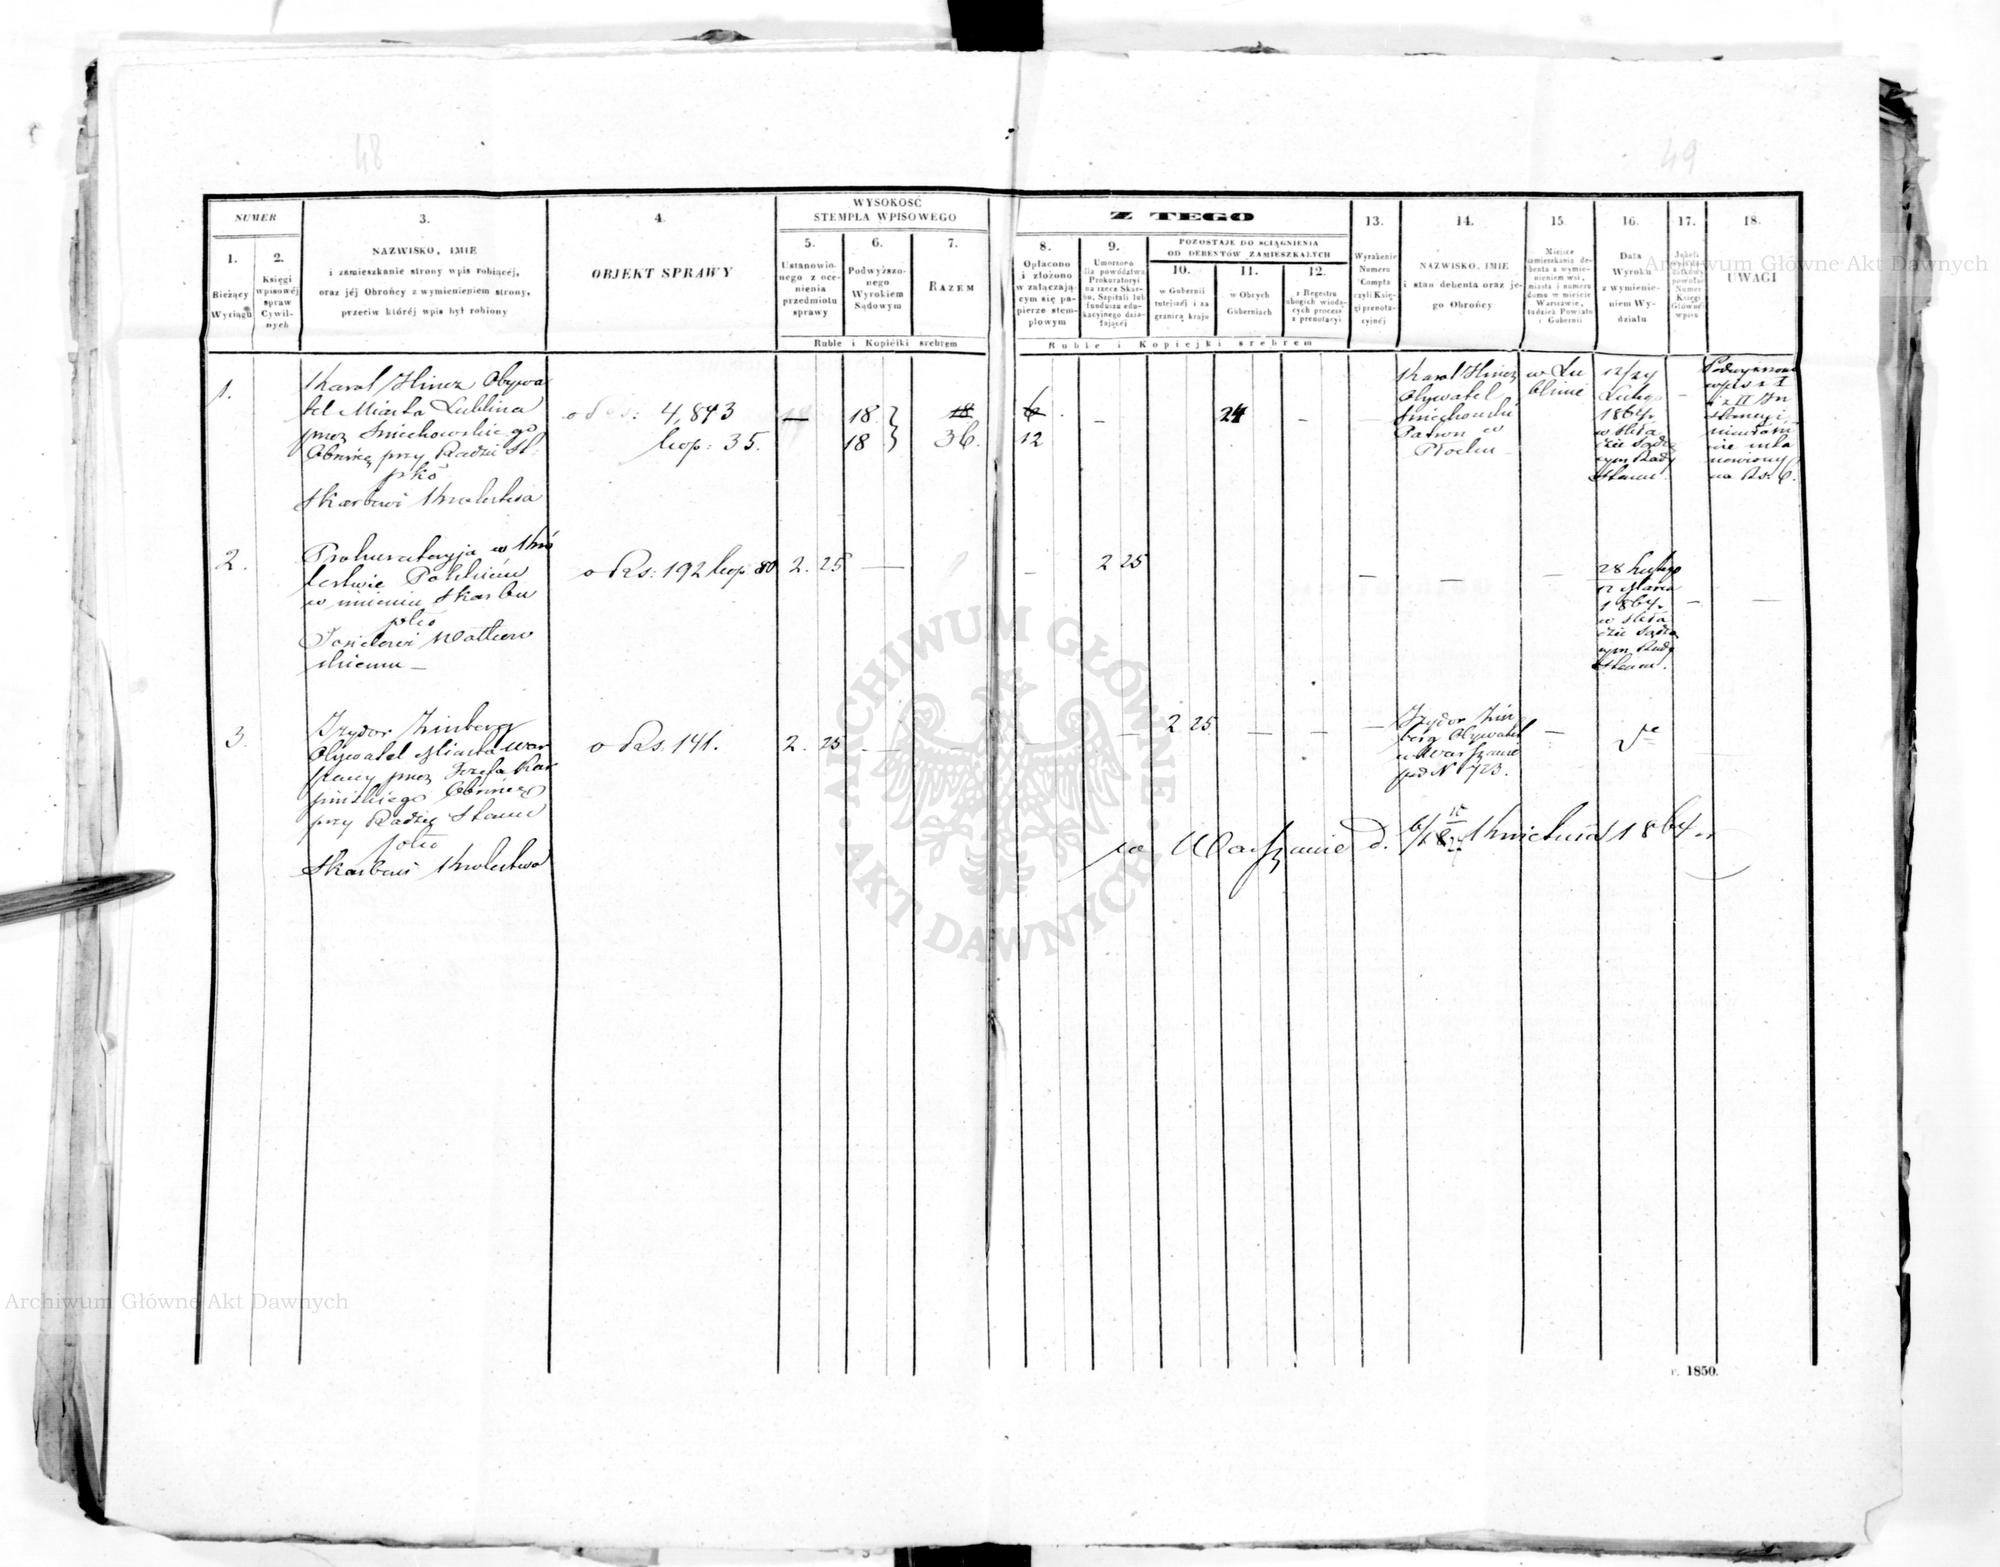 48
49
NUMER
1.
Bieżący
Wyciągu
2.
Księgi
wpisowéj
spraw
Cywil-
nych
3.
NAZWISKO, IMIE
i zamieszkanie strony wpis robiącéj,
oraz jéj Obrońcy z wymienieniem strony,
przeciw któréj wpis był robiony
4.
OBJEKT SPRAWY
WYSOKOŚĆ
STEMPLA WPISOWEGO
5.
Ustanowio-
nego z oce-
nienia
przedmiotu
sprawy
6.
Podwyższo-
nego
Wyrokiem
Sądowym
7.
RAZEM
Ruble i Kopiejki srebrem
Z TEGO
8.
Opłacono
i złożono
w załączają-
cym się pa-
pierze stem-
plowym
9.
Umorzono
dla powództwa
Prokuratoryi
na rzecz Skar-
bu, Szpitali lub
funduszu edu-
kacyinego dzia-
łającéj
POZOSTAJE DO ŚCIĄGNIENIA
OD DEBENTÓW ZAMIESZKAŁYCH
10.
w Gubernii
tutejszéj i za
granicą kraju
11.
w Obcych
Guberniach
12.
z Regestru
ubogich wiodą-
cych process
z prenotacyi
Ruble i Kopiejki srebrem
13.
Wyrażenie
Numeru
Compta
czyli Księ-
gi prenota-
cyjnéj
14.
NAZWISKO, IMIE
i stan debenta oraz je-
go Obrońcy
15.
Miejsce
zamieszkania de-
benta z wymie-
nieniem wsi,
miasta i numeru
domu w mieście
Warszawie,
tudzież Powiatu
i Gubernii
16.
Data
Wyroku
z wymienie-
niem Wy-
działu
17.
Numer
Księgi
Główn:
wpisu
18.
UWAGI
1.
Karol Hincz Obywa
tel Miasta Lublina
przez Śmiechowskiego
Obrońcę przy Radzie St:
pko
Skarbowi Królestwa
o Rs: 4,843
kop: 35.
18
18
18
36.
6
12
24
Karol Hincz
Obywatel
Śmiechowski
Patron w
Płocku
w Lu
blinie
12/24
Lutego
1864 r.
w Skła
dzie Sądo
wym Rady
Stanu.
Podwyższone
wpis z I
i z II In
stancyi
na Rs. 6.
2.
Prokuratoryja w Kró
lestwie Polskiém
w imieniu Skarbu
pko
Walkow
skiemu
o Rs: 192 kop 80
2. 25
2 25
28 Lutego
12 Marca
1864 r.
w Skła
dzie Sądo
wym Rady
Stanu.
3.
Izydor Zinberg
Obywatel Miasta War
szawy przez Józefa Kar
pińskiego Obrońcę
przy Radzie Stanu
pko
Skarbowi Królestwa
o Rs. 141.
2. 25
2 25
Izydor Zin
berg Obywatel
w Warszawie
pod N 723.
w Warszawie d. Kwietnia 1864 r.
r. 1850.
ARCHIWUM GŁÓWNE
AKT DAWNYCH
Archiwum Główne Akt Dawnych
Archiwum Główne Akt Dawnych